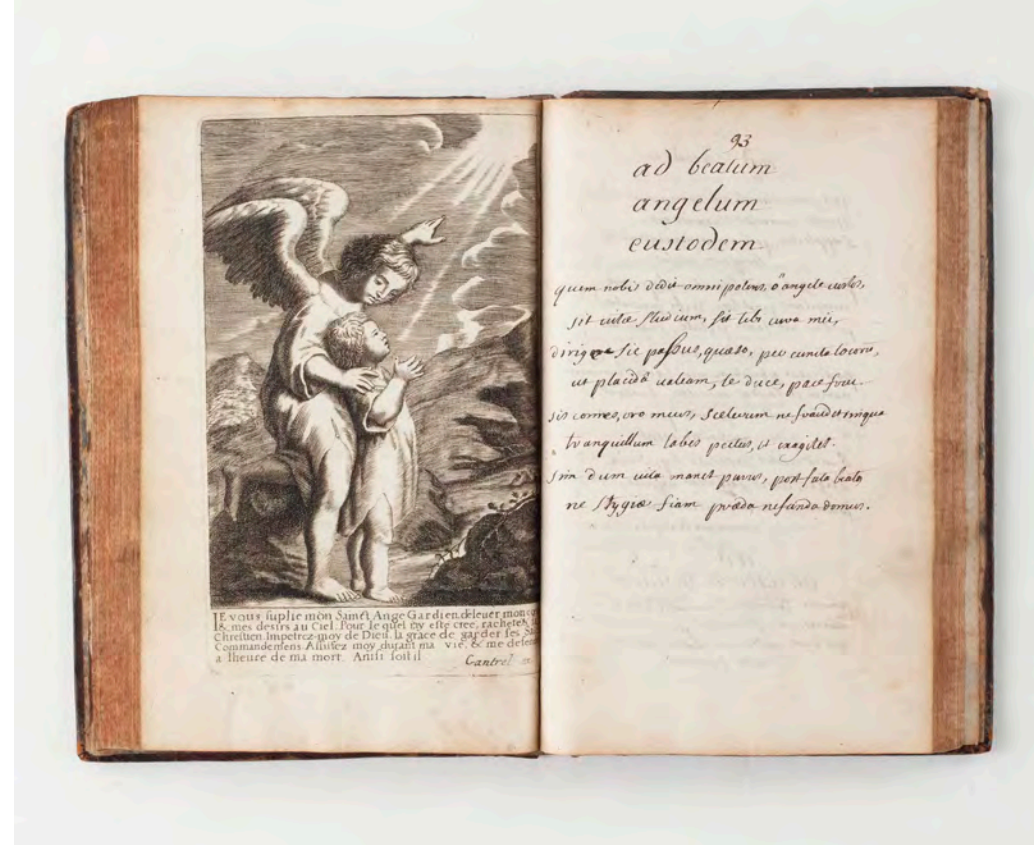 JE vous suplie mon Sainct Ange Gardien, deleuer mon
& mes desirs au Ciel. Pour le quel iay esté creé, racheteé,
Chrestien. Impetrez-moy de Dieu, la grace de garder ses
Commandemens. Assistez moy durant ma vie, & me
a lheure de ma mort. Ainsi soit il
Cantrel
93
ad beatum
angelum
custodem
quem nobis dedit omnipotens, ô angele custos,
sit vitæ studium, sit tibi cura mei,
dirige sic passus, quæso, per cuncta locorum,
ut placidâ valeam, te duce, pace frui.
sis comes, oro meus, scelerum ne fraudet iniqua
tranquillum labes pectus, et exagitet.
sim dum vita manet purus, post fata beata
ne stygiæ fiam præda nefanda domus.